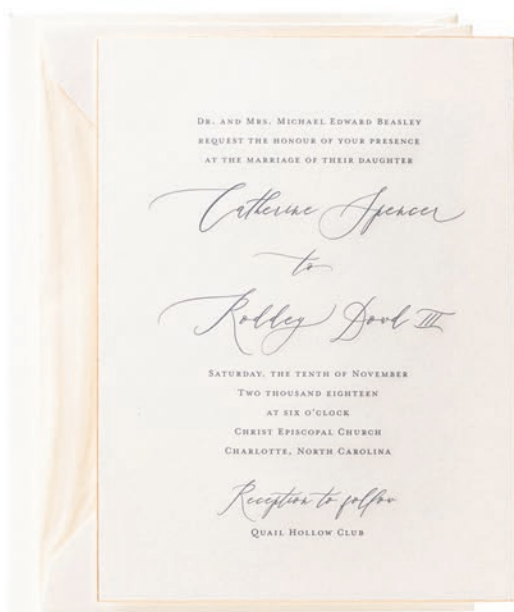 DR. AND MRS. MICHAEL EDWARD BEASLEY
REQUEST THE HONOUR OF YOUR PRESENCE
AT THE MARRIAGE OF THEIR DAUGHTER
Catherine Spencer
to
Roddey Dowd III
SATURDAY, THE TENTH OF NOVEMBER
TWO THOUSAND EIGHTEEN
AT SIX O'CLOCK
CHRIST EPISCOPAL CHURCH
CHARLOTTE, NORTH CAROLINA
Reception to follow
QUAIL HOLLOW CLUB